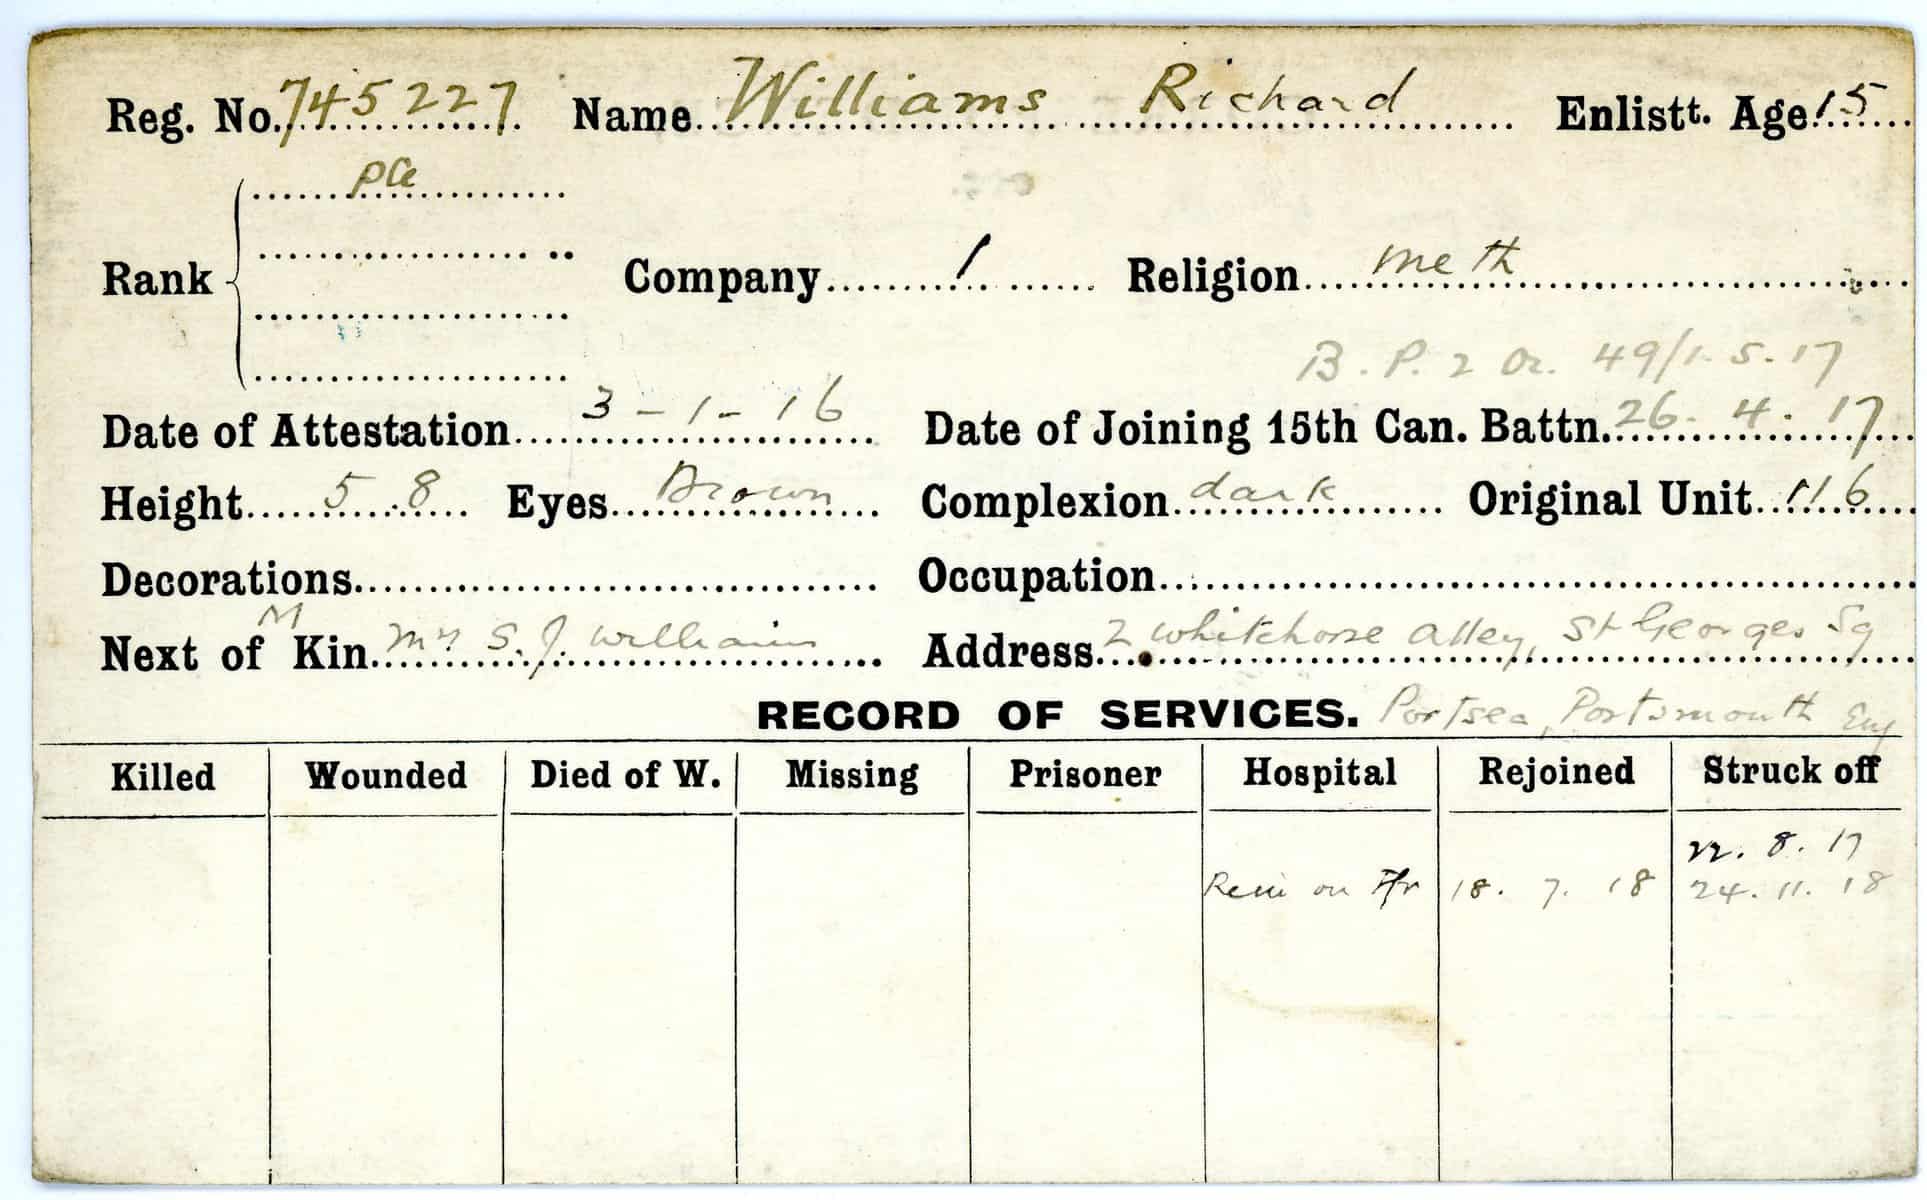 Reg. No. 745227 Name Williams Richard Enlistt. Age 15
Pte
Rank Company 1 Religion Meth
B.P. 2 Or. 49/1.5.17
Date of Attestation 3-1-16 Date of Joining 15th Can. Battn. 26.4.17
Height 5.8 Eyes Brown Complexion dark Original Unit 116
Decorations Occupation
M
Next of Kin Mrs S.J. Williams Address 2 Whitehorse Alley, St Georges Sq
RECORD OF SERVICES. Portsea, Portsmouth Eng
Killed Wounded Died of W. Missing Prisoner Hospital Rejoined Struck off
22.8.17
Rein on 18.7.18 24.11.18